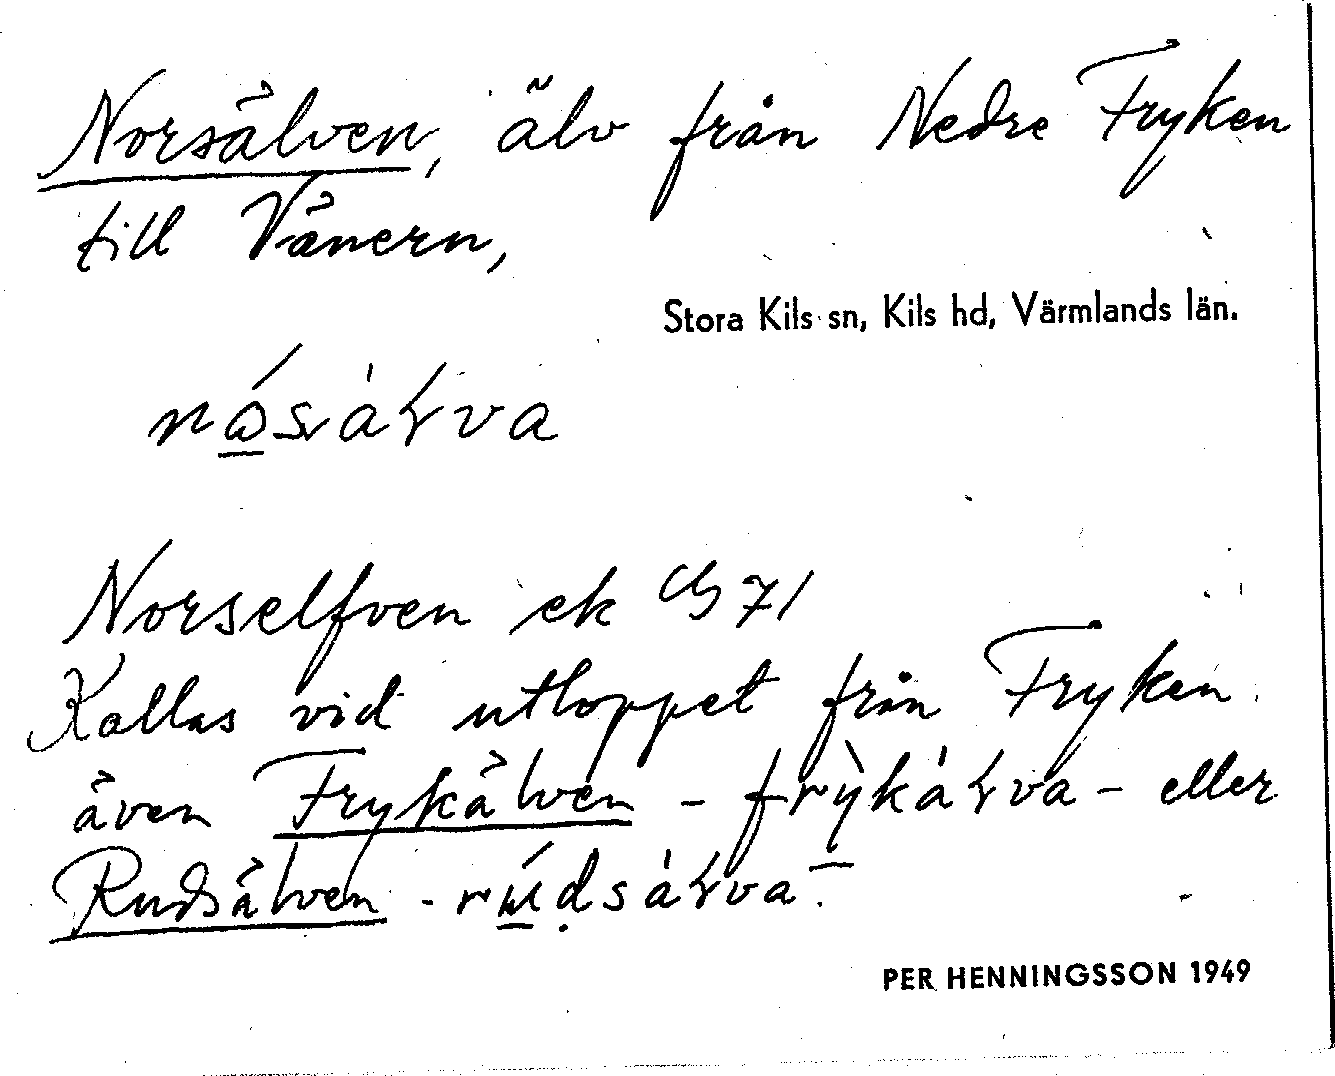 Norsälven, älv från Nedre Fryken
till Vänern,
Stora Kils sn, Kils hd, Värmlands län.
Norselfven ek GS 71
Kallas vid utloppet från Fryken
även Frykälven - frỳkáɽva - eller
Rudsälven - rúdsáɽva.
PER HENNINGSSON 1949